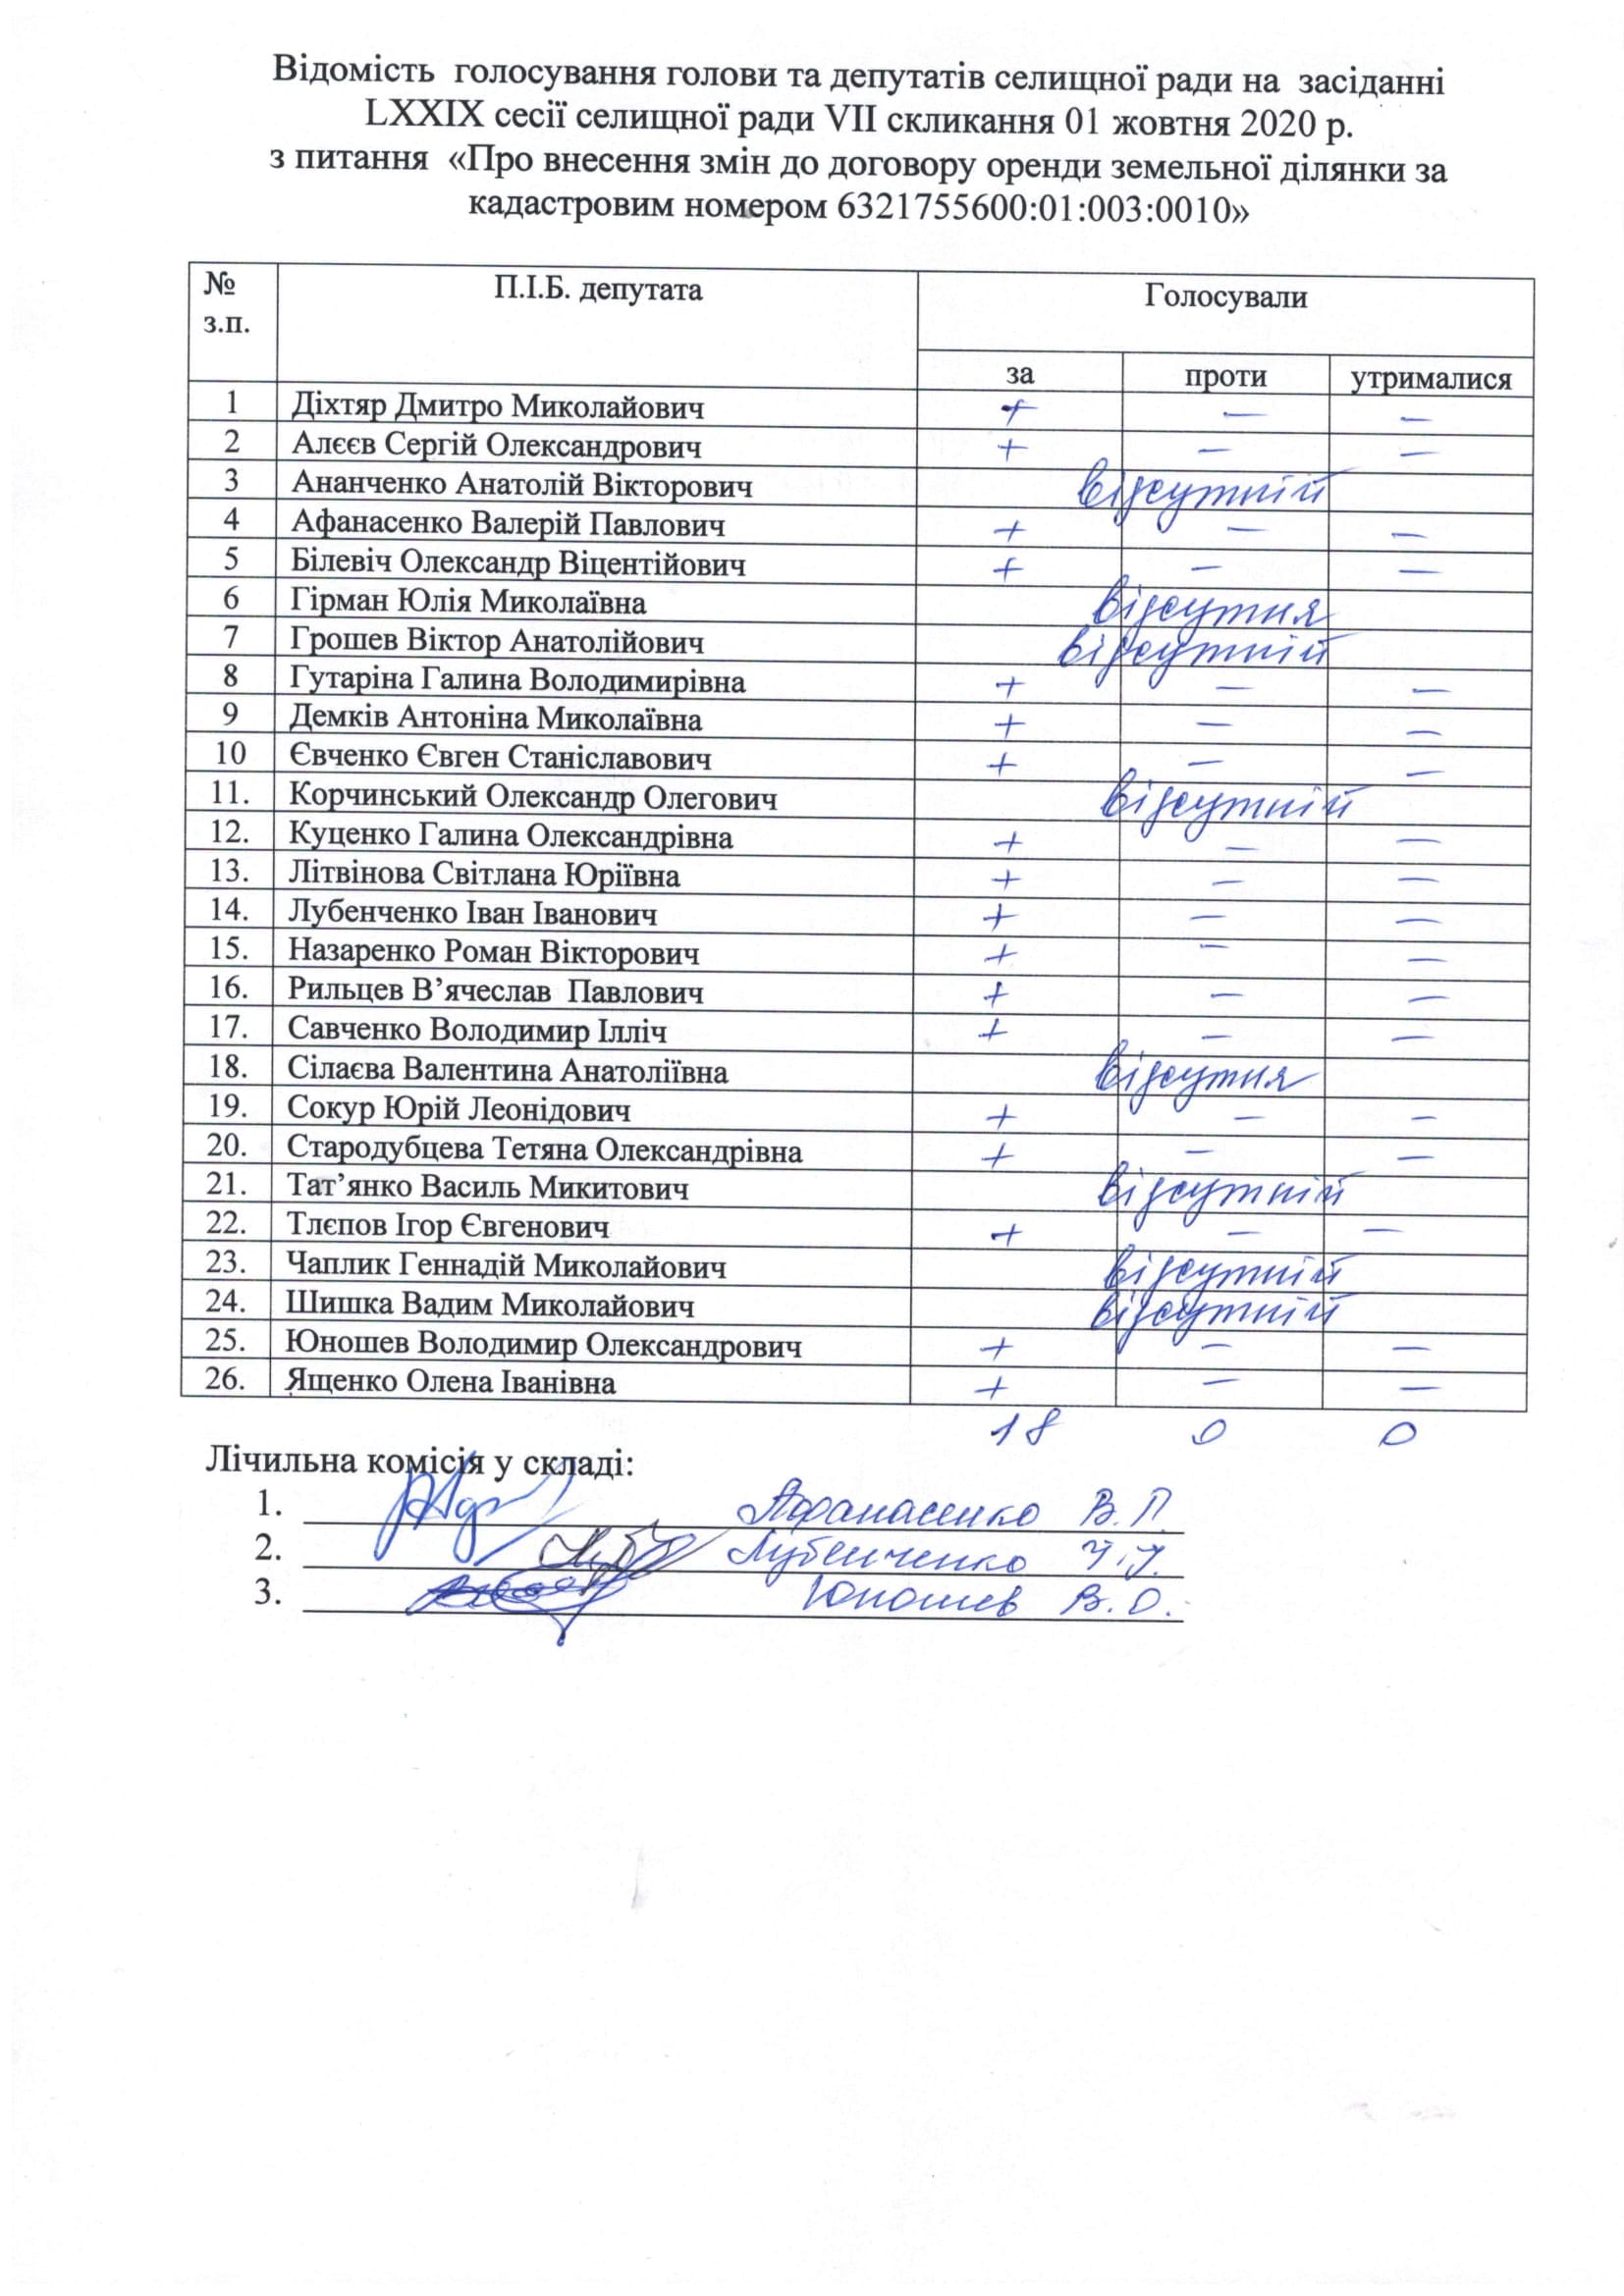 Відомість голосування голови та депутатів селищної ради на засіданні
LXXIX сесії селищної ради VII скликання 01 жовтня 2020 р.
з питання «Про внесення змін до договору оренди земельної ділянки за
кадастровим номером 6321755600:01:003:0010»
№ з.п. П.І.Б. депутата Голосували
за проти утрималися
1 Діхтяр Дмитро Миколайович + — —
2 Алєєв Сергій Олександрович + — —
3 Ананченко Анатолій Вікторович відсутній
4 Афанасенко Валерій Павлович + — —
5 Білевіч Олександр Віцентійович + — —
6 Гірман Юлія Миколаївна відсутня
7 Грошев Віктор Анатолійович відсутній
8 Гутаріна Галина Володимирівна + — —
9 Демків Антоніна Миколаївна + — —
10 Євченко Євген Станіславович + — —
11. Корчинський Олександр Олегович відсутній
12. Куценко Галина Олександрівна + — —
13. Літвінова Світлана Юріївна + — —
14. Лубенченко Іван Іванович + — —
15. Назаренко Роман Вікторович + — —
16. Рильцев В’ячеслав Павлович + — —
17. Савченко Володимир Ілліч + — —
18. Сілаєва Валентина Анатоліївна відсутня
19. Сокур Юрій Леонідович + — —
20. Стародубцева Тетяна Олександрівна + — —
21. Тат’янко Василь Микитович відсутній
22. Тлєпов Ігор Євгенович + — —
23. Чаплик Геннадій Миколайович відсутній
24. Шишка Вадим Миколайович відсутній
25. Юношев Володимир Олександрович + — —
26. Ященко Олена Іванівна + — —
18 0 0
Лічильна комісія у складі:
1. Афанасенко В.П.
2. Лубенченко І.І.
3. Юношев В.О.